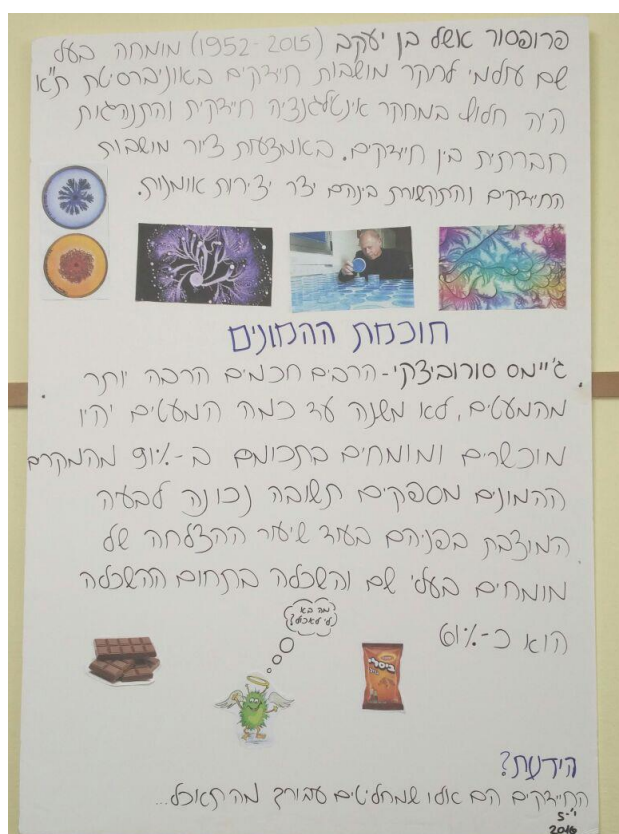 פרופסור אשל בן יעקב (1952-2015) מומחה בעל
שם עולמי לחקר מושבות חיידקים באוניברסיטת ת"א
היה חלוץ במחקר אינטלגנציה חיידקית והתנהגות
חברתית בין חיידקים. באמצעות ציור מושבות
החיידקים והתקשורת בינהם יצר יצירות אומנות.
חוכמת ההמונים
ג'יימס סורוביצקי - הרבים חכמים הרבה יותר
מהמעטים, לא משנה עד כמה המעטים יהיו
מוכשרים ומומחים בתכומם ב-91% מהמקרם
ההמונים מספקים תשובה נכונה לבעיה
המוצבת בפניהם בעוד שיעור ההצלחה של
מומחים בעלי שם והשכלה בתחום ההשכלה
הוא כ-61%
מה בא
לי לאכול?
ביסלי
הידעת?
החיידקים הם אלו שמחליטים עבורך מה תאוכל...
י'-5
2016